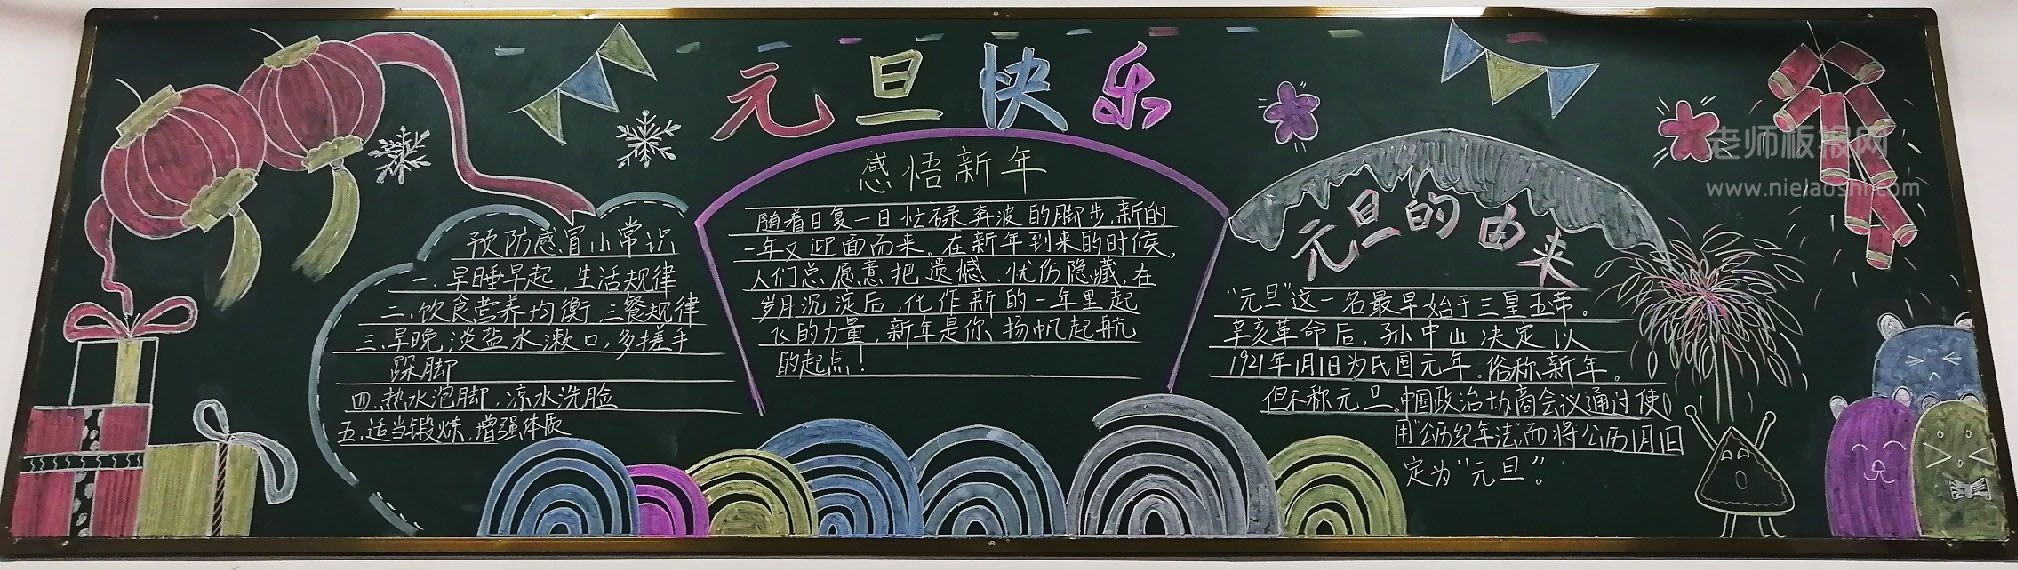 元旦快乐
老师板报网
www.nielaoshi.com
预防感冒小常识
一.早睡早起,生活规律
二.饮食营养均衡,三餐规律
三.早晚,淡盐水漱口,多搓手
跺脚
四.热水泡脚,凉水洗脸
五.适当锻炼,增强体质
感悟新年
随着日复一日忙碌奔波的脚步,新的
一年又迎面而来。在新年到来的时候,
人们总愿意把遗憾.忧伤隐藏,在
岁月沉淀后,化作新的一年里起
飞的力量,新年是你扬帆起航
的起点!
元旦的由来
"元旦"这一名最早始于三皇五帝。
辛亥革命后,孙中山决定以
1921年1月1日为民国元年。俗称新年。
但不称元旦。中国政治协商会议通过使
用"公历纪年法",而将公历1月1日
定为"元旦"。